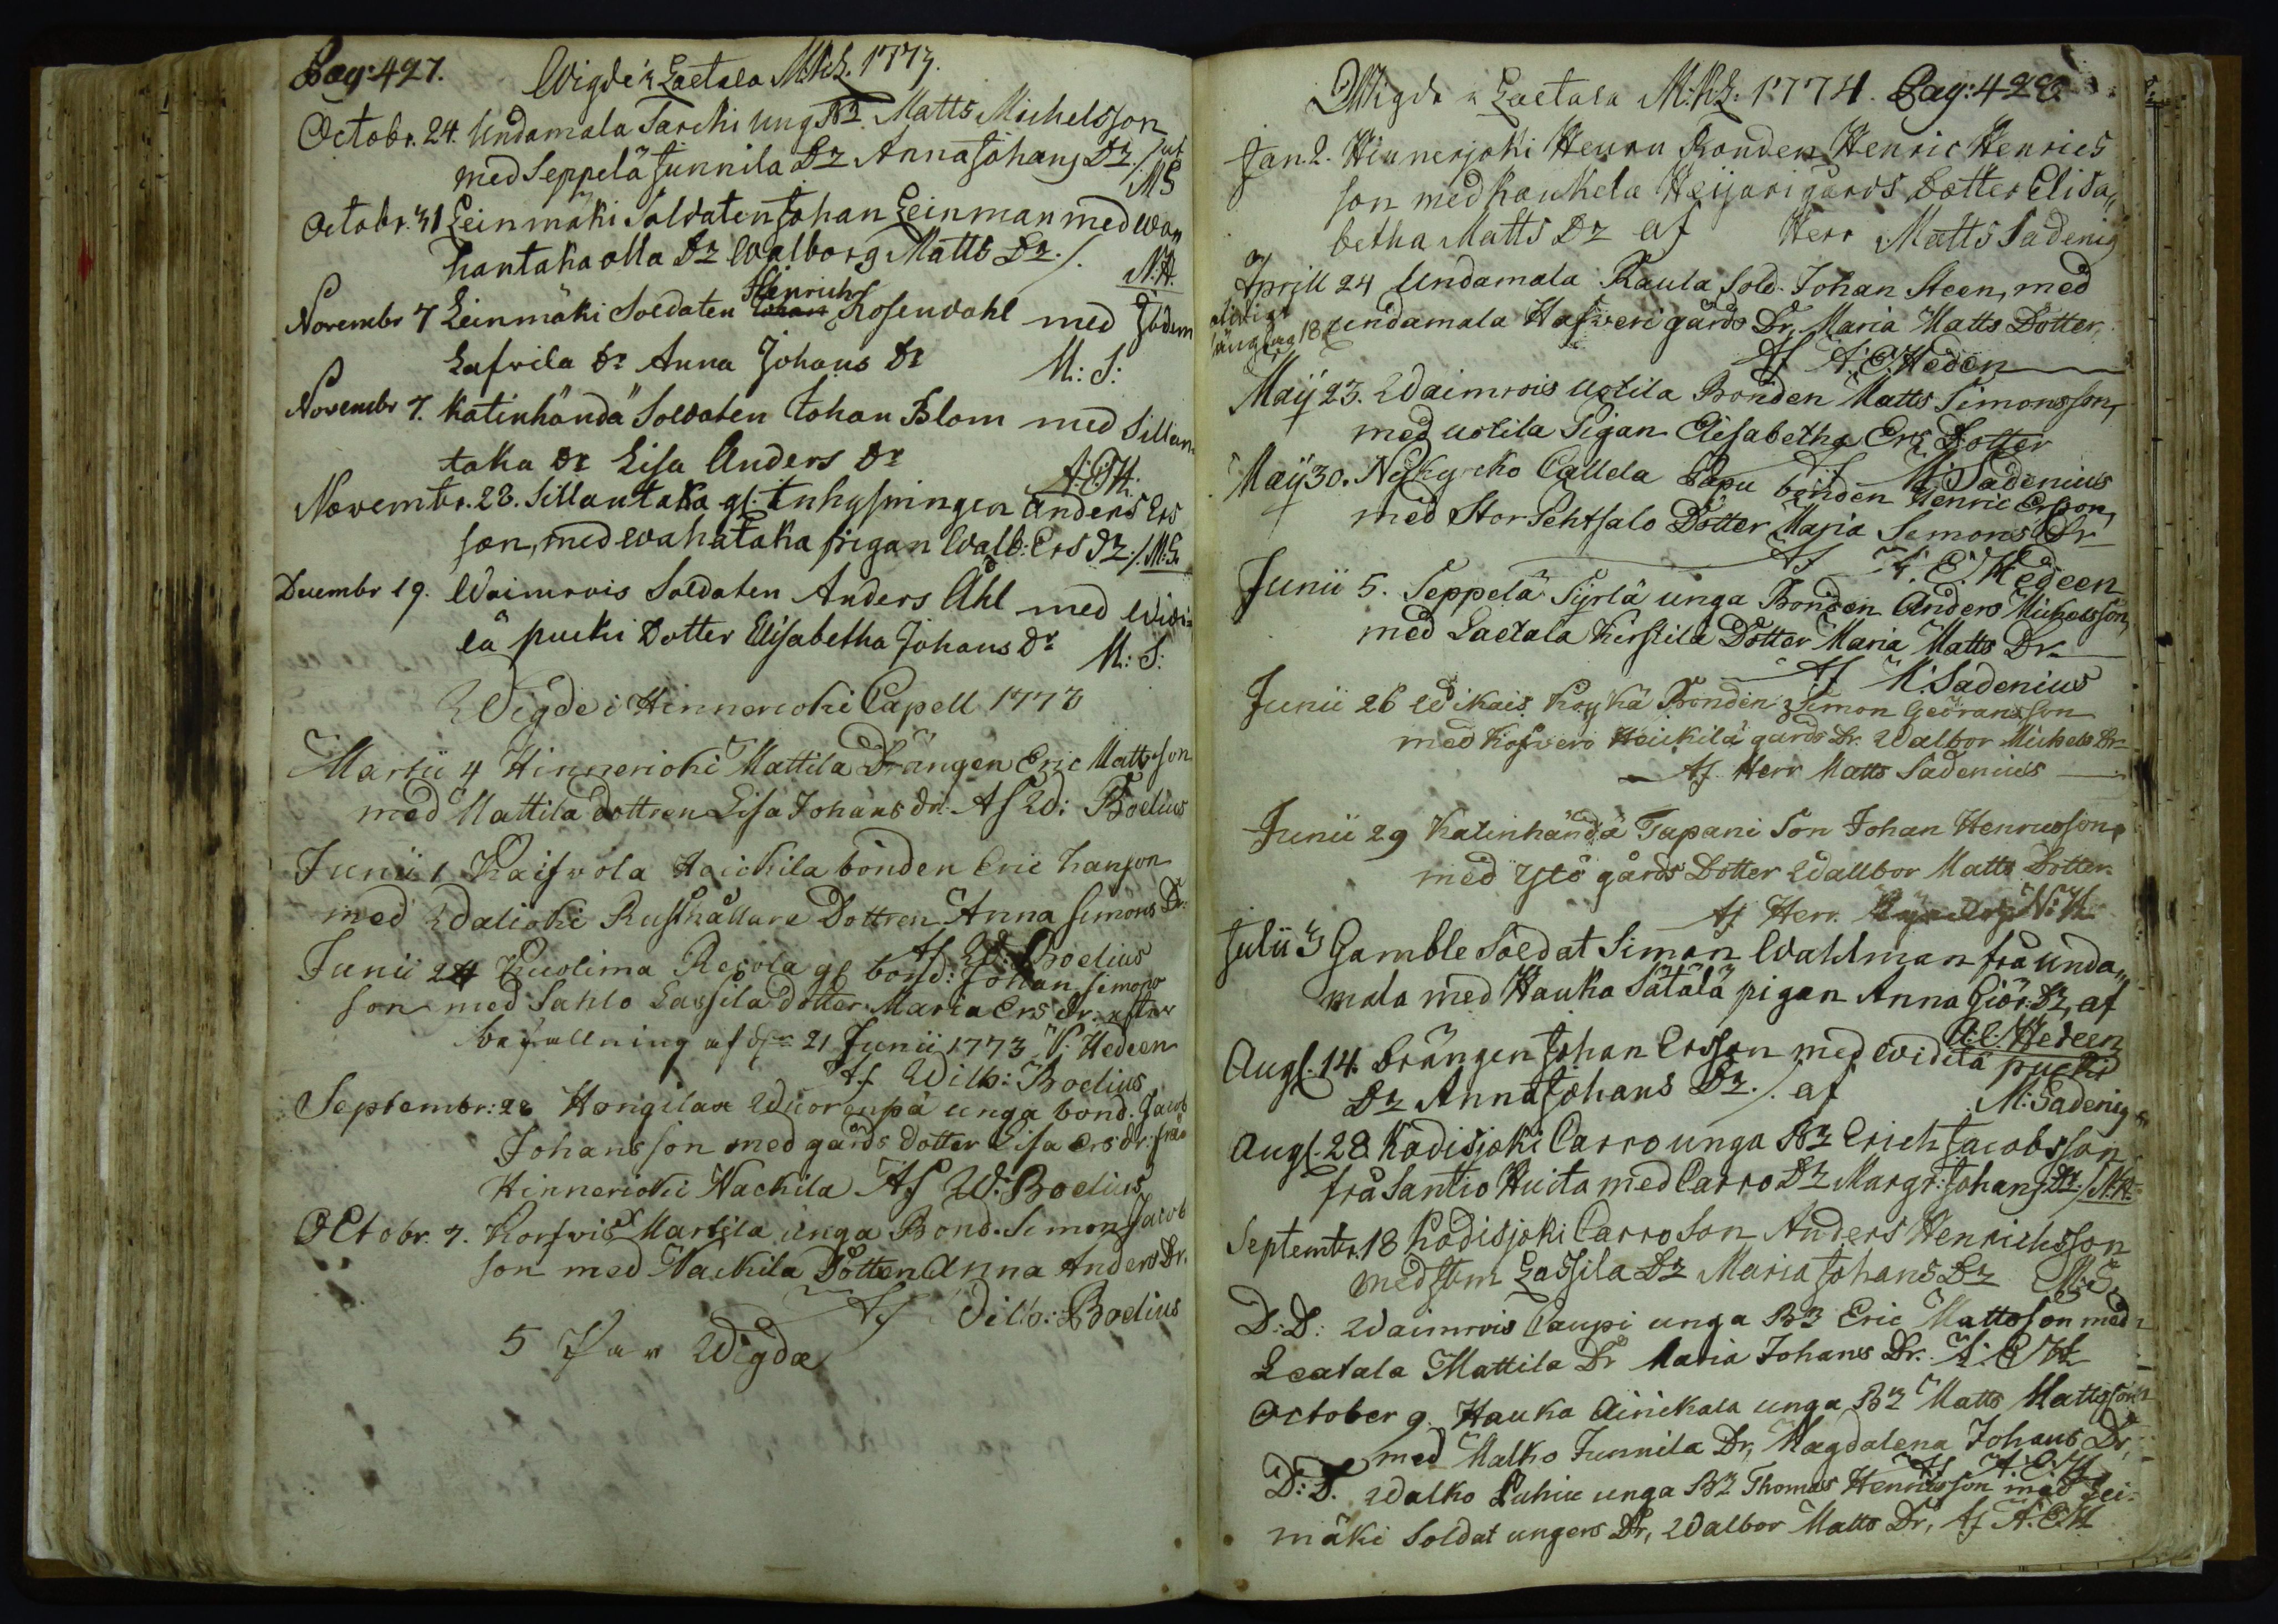 Pag: 427. Wigde i Laetala M.K.L. 1773.
Octobr. 24. Undamala Tarchi ung Bz. Matts Michelsson
med Seppelä Junnila Dr Anna Johans Dr. /
MS
Octobr. 31 Leinmäki Soldaten Johan Leinman med Wan
hantaka olla Dr Walborg Matts Dr. /. N.H.
Novembr 7 Leinmäki Soldaten Hinrich Rosenwahl med Ibidem
Lafvila Dr Anna Johans Dr M: S:
Novembr 7. Katinhändä Soldaten Johan Blom med Sillan
taka Dr Lisa Anders Dr A: E: H:
Novembr. 28. Sillantaka gl. Inhysningen Anders Ers
son, med Wahataka pigan Walb: Ers Dr. /. M: S.
Decembr 19. Waimrois Soldaten Anders Ahl med Widi-
lä pucki Dotter Elisabetha Johans Dr M: S:
Wigde i Hinnerioki Capell 1773
Martii 4 Hinnerioki Mattila Drängen Eric Mattsson
med Mattila dottren Lisa Johans dr. Af W: Boelius
Junii 1 Kaifvola Haickila bonden Eric hanson
med Walioki Rusthållare Dottren Anna Simons Dr
Af W: Boelius
Junii 24 Kuolima Regola gl bond: Johan Simons
son med Sahlo Lassila dotter Maria Ers dr. efter
befallning af 21 Junii 1773 P. Hedeen
Af Wilh: Boelius
Septembr: 28 Hongilax Wuorenpä unga bond. Jacob
Johansson med gårds dotter Lisa Ers dr: från
Hinnerioki Nackila Af W: Boelius
Octobr. 7. Korfvis Martila unga Bond. Simon Jacob
son med Nackila Dotten Anna Anders Dr.
Af Wilh: Boelius
5 Par Wigda
Wigde i Laetala M:K:L. 1774. Pag: 428.
Jan. 2. Hinnerjoki Heuru Bonden Henric Henrics
son med Kaukela Heijari gårds Dotter Elisa„
betha Matts Dr af Herr Matts Sadenig
Aprill 24 Undamala Kaula Sold. Johan Steen, med
Undamala Hafveri gårds Dr, Maria Matts Dotter
Af A: E: Hedén
Maij 23. Waimrois Uotila Bonden Matts Simonsson,
med Uotila Pigan Elisabetha Ers Dotter
Af M: Sadenius
Maij 30. Nykyrcko Callela Papu bonden Henric Ersson,
med Stor Pehtsalo Dotter Maria Simons Dr
Af A. E. Hedeen
Junii 5. Seppelä Syrlä unga Bonden Anders Mickelsson,
med Laetala Kerstila Dotter Maria Matts Dr
Af M. Sadenius
Junii 26 Wikais Koykä Bonden Simon Geöransson
med Kofvero Heickilä gårds Dr. Walbor Mickels Dr
Af Herr Matts Sadenius
Junii 29 Katinhändä Tapani Son Johan Henricsson,
med Ystö gårds Dotter Wallbor Matts Dotter
Af Herr. N: H:
Julii 3 Gamble Soldat Simon Wahlman frå unda„
mala med Hauka Sätälä pigan Anna Giör: Dr, af
A: E: Hedeen
Augs. 14. Drängen Johan Ersson med Widilä pucki
Dr Anna Johans Dr. /. af M: Sadenig
Augs. 28. Kodisjoki Carro unga Bz Erich Jacobsson
frå Santio Huita med Carro Dr Margr: Johans Dr. / N.H:
Septembr. 18 Kodisjoki Carro Son Anders Henrichsson
med Lassila Dr Maria Johans Dr M: S.
D: D: Waimrois Caupi unga Bz Eric Mattsson med
Leatala Mattila Dr Maria Johans Dr. A: E: H
October 9. Hauka Ainikala unga Bz Matts Mattsson
med Malko Junnila Dr, Magdalena Johans Dr,
Af A: E: H
D: D. Walko Puhu unga Bz Thomas Henricsson med Lei-
mäki Soldat ungers Dr, Walbor Matts Dr, Af A: E: H